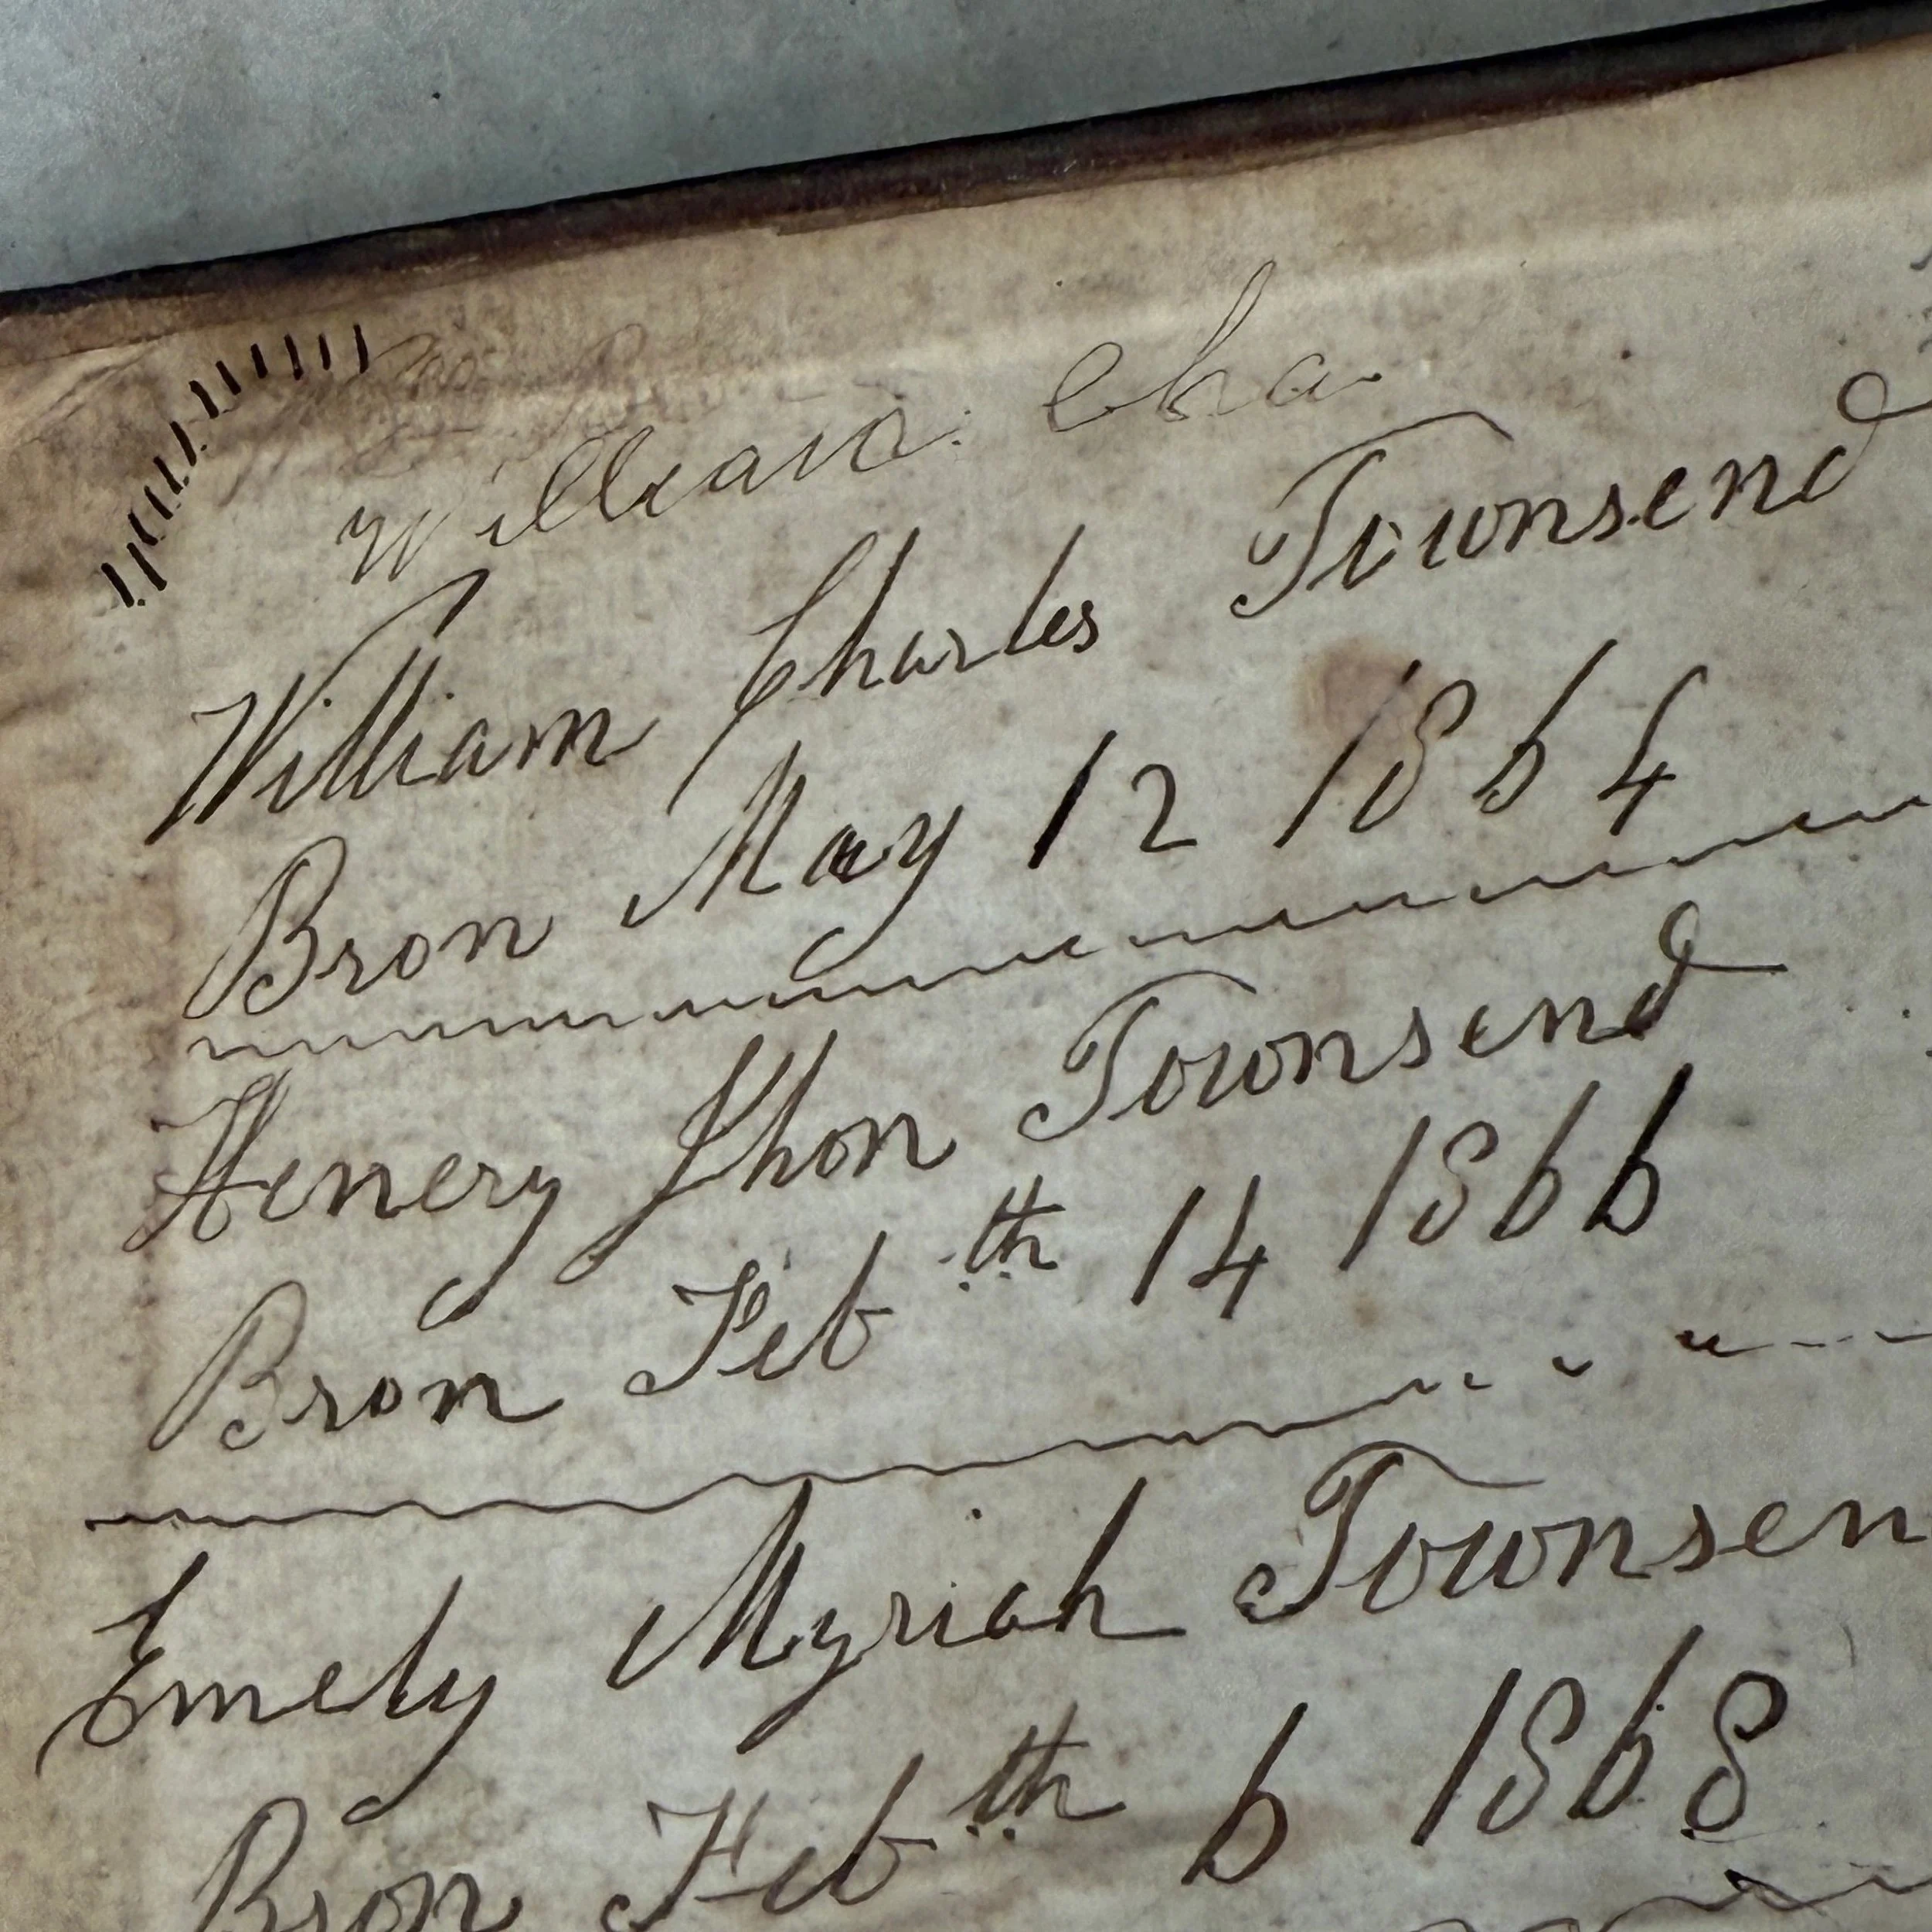 William Cha
William Charles Townsend
Bron May 12 1864
Henery Jhon Townsend
Bron Feb th 14 1866
Emely Myriah Townsen
Bron Feb th 6 1868